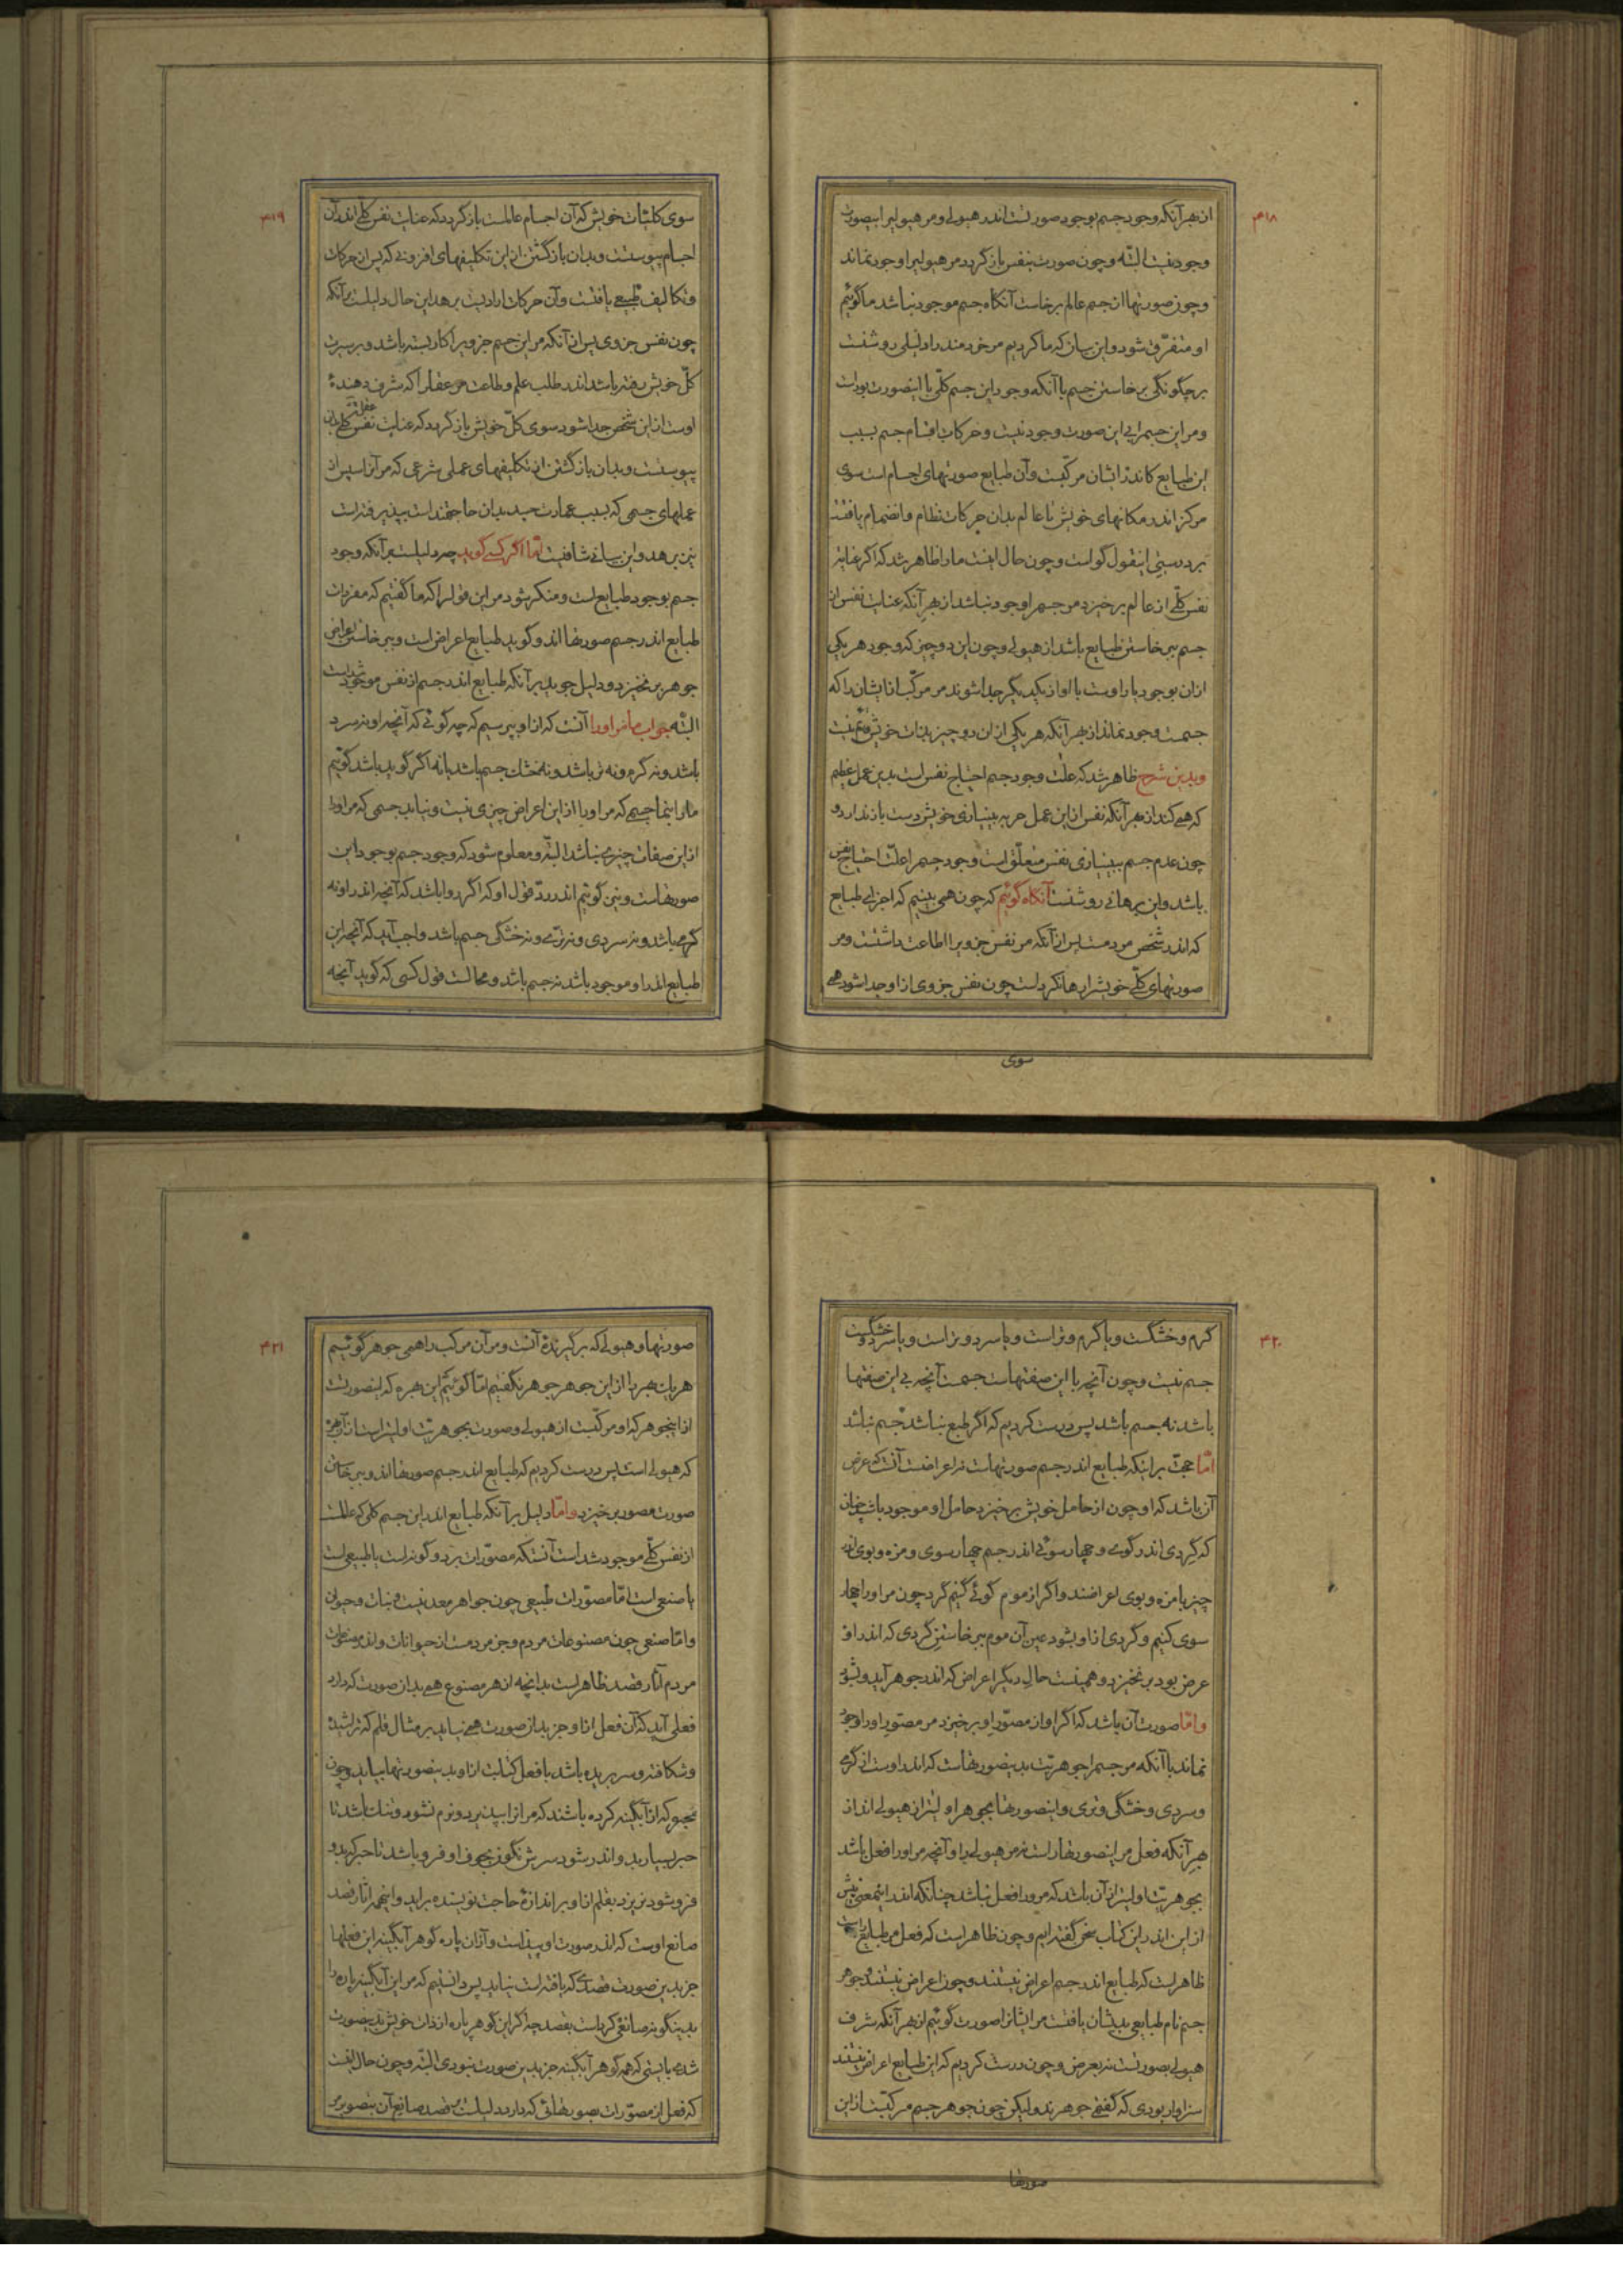 ۴۱۸
از بهر آنکه وجود جسم بوجود صورتست اندر هیولی و مر هیولی را بیصورت
وجود نیست البته و چون صورت بنفس باز گردد مر هیولی را وجود نماند
و چون صورتها از جسم عالم برخاست آنگاه جسم موجود نباشد ما گوئیم
او متفرّق شود و این بیان که ما کردیم مر خردمند را دلیلی روشنست
بر چگونگی برخاستن جسم با آنکه وجود این جسم کلّی با اینصورت بودست
و مر این جسم را بی این صورت وجود نیست و حرکات اقسام جسم بسبب
این طبایع کاندر ایشان مرکّبست و آن طبایع صورتهای اجسام است سوی
مرکز اندر مکانهای خویش تا عالم بدان حرکات نظام و انضمام یافتست
بر درستی اینقول گواست و چون حال اینست ما را ظاهر شد که اگر عنایت
نفس کلّی از عالم برخیزد مر جسم را وجود نباشد از بهر آنکه عنایت نفس از
جسم برخاستن طبایع باشد از هیولی و چون این دو چیز که وجود هر یکی
ازان بوجود یار اوست با او از یکدیگر جدا شوند مر مرکّب ازایشان را که
جسمست وجود نماند از بهر آنکه هر یکی ازان دو چیز بذات خویش قائم نیست
و بدین شرح ظاهر شد که علّت وجود جسم احتیاج نفس است بدین عمل عظیم
که همی کند از بهر آنکه نفس از این عمل جز به بینیازی خویش دست باز ندارد و
چون عدم جسم ببینیازی نفس متعلّق است وجود جسم را علّت احتیاج نفس
باشد و این برهانی روشنست آنگاه گوئیم که چون همی بینیم که اجزای طبایع
که اندر شخص مردمست پس از آنکه مر نفس جزوی را اطاعت داشتست و مر
صورتهای کلّی خویش را رها کرده است چون نفس جزوی ازاو جدا شود همی
سوی
۴۱۹
سوی کلیّات خویش که آن اجسام عالمست باز گردد که عنایت نفس کلّی اندر آن
اجسام پیوستست و بدان باز گشتن از این تکلیفهای افزونی که پس از حرکات
و تکالیف طبیعی یافتست و آن حرکات ارادیست برهد این حال دلیلست بر آنکه
چون نفس جزوی پس از آنکه مر این جسم جزوی را کار بسته باشد و بر سیرت
کلّ خویش رفته باشد اندر طلب علم و طاعت مر عقل را که شرف دهندهٔ
اوست از این شخص جدا شود سوی کلّ خویش باز گردد که عنایت عقل بنفس کلی بدان
پیوستست و بدان باز گشتن از تکلیفهای عملی شرعی که مر آنرا سپس از
عملهای جسمی که بسبب عمارت جسد بدان حاجتمند است بپذیرفته است
نیز برهد و این بیانی شافیست امّا اگر کسی گوید چه دلیلست بر آنکه وجود
جسم بوجود طبایع است و منکر شود مر این قول را که ما گفتیم که مفردات
طبایع اندر جسم صورتها اند و گوید طبایع اعراض است و ببرخاستن اعراض
جوهر برنخیزد و دلیل جوید بر آنکه طبایع اندر جسم از نفس موجود شده است
البتّه جواب ما مر او را آنست که ازاو بپرسیم که چه گوئی که آنچه او نه سرد
باشد و نه گرم و نه تر باشد و نه خشک جسم باشد یا نه اگر گوید باشد گوئیم
ما را بنما جسمی که مر او را از این اعراض چیزی نیست و نیابد جسمی که مر او را
از این صفات چیزی نباشد البتّه و معلوم شود که وجود جسم بوجود این
صورتهاست و نیز گوئیم اندر ردّ قول او که اگر روا باشد که آنچه اندر او نه
گرمی باشد و نه سردی و نه ترّی و نه خشکی جسم باشد واجب آید که آنچه این
طبایع اندر او موجود باشد نه جسم باشد و محالست قول کسی که گوید آنچه
۴۲۰
گرم و خشگست و یا گرم و تر است و یا سرد و تر است و یا سرد و خشگست
جسم نیست و چون آنچه با این صفتهاست جسمست آنچه بی این صفتها
باشد نه جسم باشد پس درست کردیم که اگر طبع نباشد جسم نباشد
امّا حجّت بر اینکه طبایع اندر جسم صورتهاست نه اعراضست آنست که عرض
آن باشد که او چون از حامل خویش برخیزد حامل او موجود باشد چنان
که گردی اندر گوی و چهار سوئی اندر جسم چهار سوی و مزه و بوی اندر
چیز با مزه و بوی اعراضند و اگر از موم گوئی کنیم گرد چون مر او را چهار
سوی کنیم و گردی ازاو بشود عین آن موم ببرخاستن گردی که اندر او
عرض بود برنخیزد و همینست حال دیگر اعراض که اندر جوهر آید و بشود
و امّا صورت آن باشد که اگر او از مصوّر او برخیزد مر مصوّر او را وجود
نماند با آنکه مر جسم را جوهریّت بدینصورتهاست که اندر اوست از گرمی
و سردی و خشگی و تری و اینصورتها بجوهر اولیتر از هیولی اند از
بهر آنکه فعل مر اینصورتها راست نه مر هیولی را و آنچه مر او را فعل باشد
بجوهریّت اولیتر از آن باشد که مرورا فعل نباشد چنانکه اندر اینمعنی پیش
از این اندر این کتاب سخن گفته ایم و چون ظاهر است که فعل مر طبایع راست
ظاهر است که طبایع اندر جسم اعراض نیستند و چون اعراض نیستند و جوهر
جسم نام طبایعی بدیشان یافتست مر ایشانرا صورت گوئیم از بهر آنکه شرف
هیولی بصورتست نه بعرض و چون درست کردیم که این طبایع اعراض نیستند
سزاوار بودی که گفتیمی جوهرند ولیکن چون جوهر جسم مرکّبست از این
صورتها
۴۲۱
صورتها و هیولی که برگیرندهٔ آنست و مر آن مرکّب را همی جوهر گوئیم
هر یک بهر را از این جوهر جوهر نگفتیم امّا گوئیم این بهره که اینصورتست
از اینجوهر که او مرکّبست از هیولی و صورت بجوهریّت اولیتر است از آن بهره
که هیولی است پس درست کردیم که طبایع اندر جسم صورتها اند و ببرخاستن
صورت مصوّر برخیزد و امّا دلیل بر آنکه طبایع اندر این جسم کلی که عالمست
از نفس کلّی موجود شده است آنستکه مصوّرات بر دو گونه است یا طبیعی است
یا صنعی است امّا مصوّرات طبیعی چون جواهر معدنیست و نبات و حیوان
و امّا صنعی چون مصنوعات مردم و جز مردمست از حیوانات و اندر مصنوعات
مردم آثار قصد ظاهر است بدانچه از هر مصنوع همی بدان صورت که دارد
فعلی آید که آن فعل ازاو جز بدان صورت همی نیاید بر مثال قلم که تراشیده
و شکافته و سر بریده باشد تا فعل کتابت ازاو بدینصورتها بیاید و چون
محبره که از آبگینه کرده باشند که مر آنرا نپذیرد و نرم نشود و تنک باشد تا
حبر بسیار بدو اندر شود سرش نگون بجوف او فرو باشد تا حبر که بدو
فرو شود نریزد بقلم ازاو بر اندازهٔ حاجت نویسنده براید و اینهمه آثار قصد
صانع اوست که اندر صورت او پیداست و ازان پاره گوهر آبگینه این فعلها
جز بدین صورت قصدی که یافته است نیاید پس دانستیم که مر این آبگینه پاره را
بدینگونه صانعی کرده است بقصد چه اگر این گوهر پاره از ذات خویش بدینصورت
شدی بایستی که همه گوهر آبگینه جز بدین صورت نبودی البتّه و چون حال اینست
که فعل از مصوّرات بصورتهائی که دارد دلیلست بر قصد صانع آن بتصویر مر